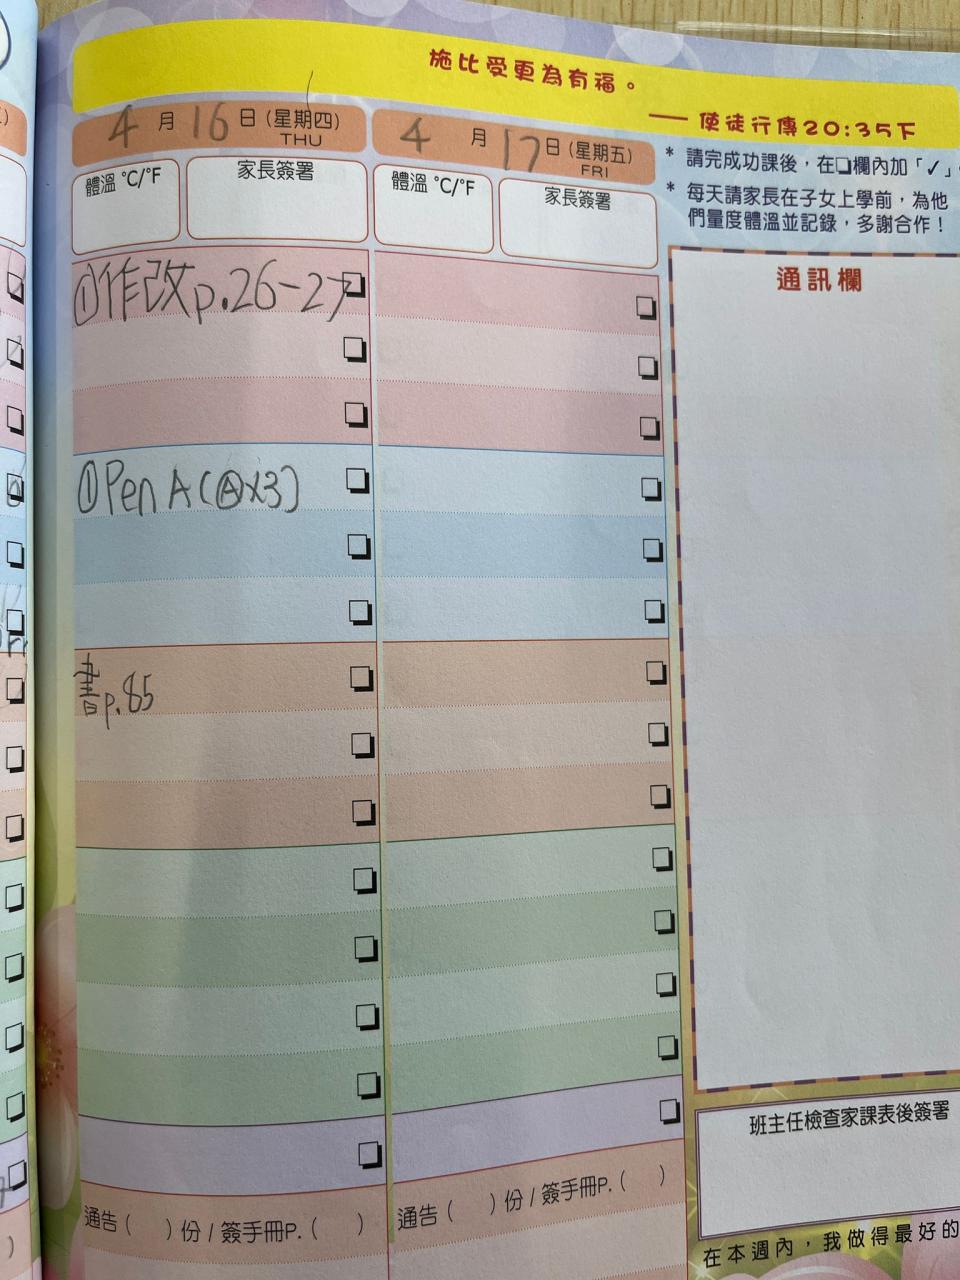 施比受更為有福。
—— 使徒行傳20:35下
4月16日(星期四)
THU
體溫 °C/°F
家長簽署
①作改p.26-27
①Pen A(Ⓐx3)
書p.85
通告(　)份/簽手冊P.(　)
4月17日(星期五)
FRI
體溫 °C/°F
家長簽署
通告(　)份/簽手冊P.(　)
* 請完成功課後，在❏欄內加「✓」
* 每天請家長在子女上學前，為他
們量度體溫並記錄，多謝合作！
通訊欄
班主任檢查家課表後簽署
在本週內，我做得最好的